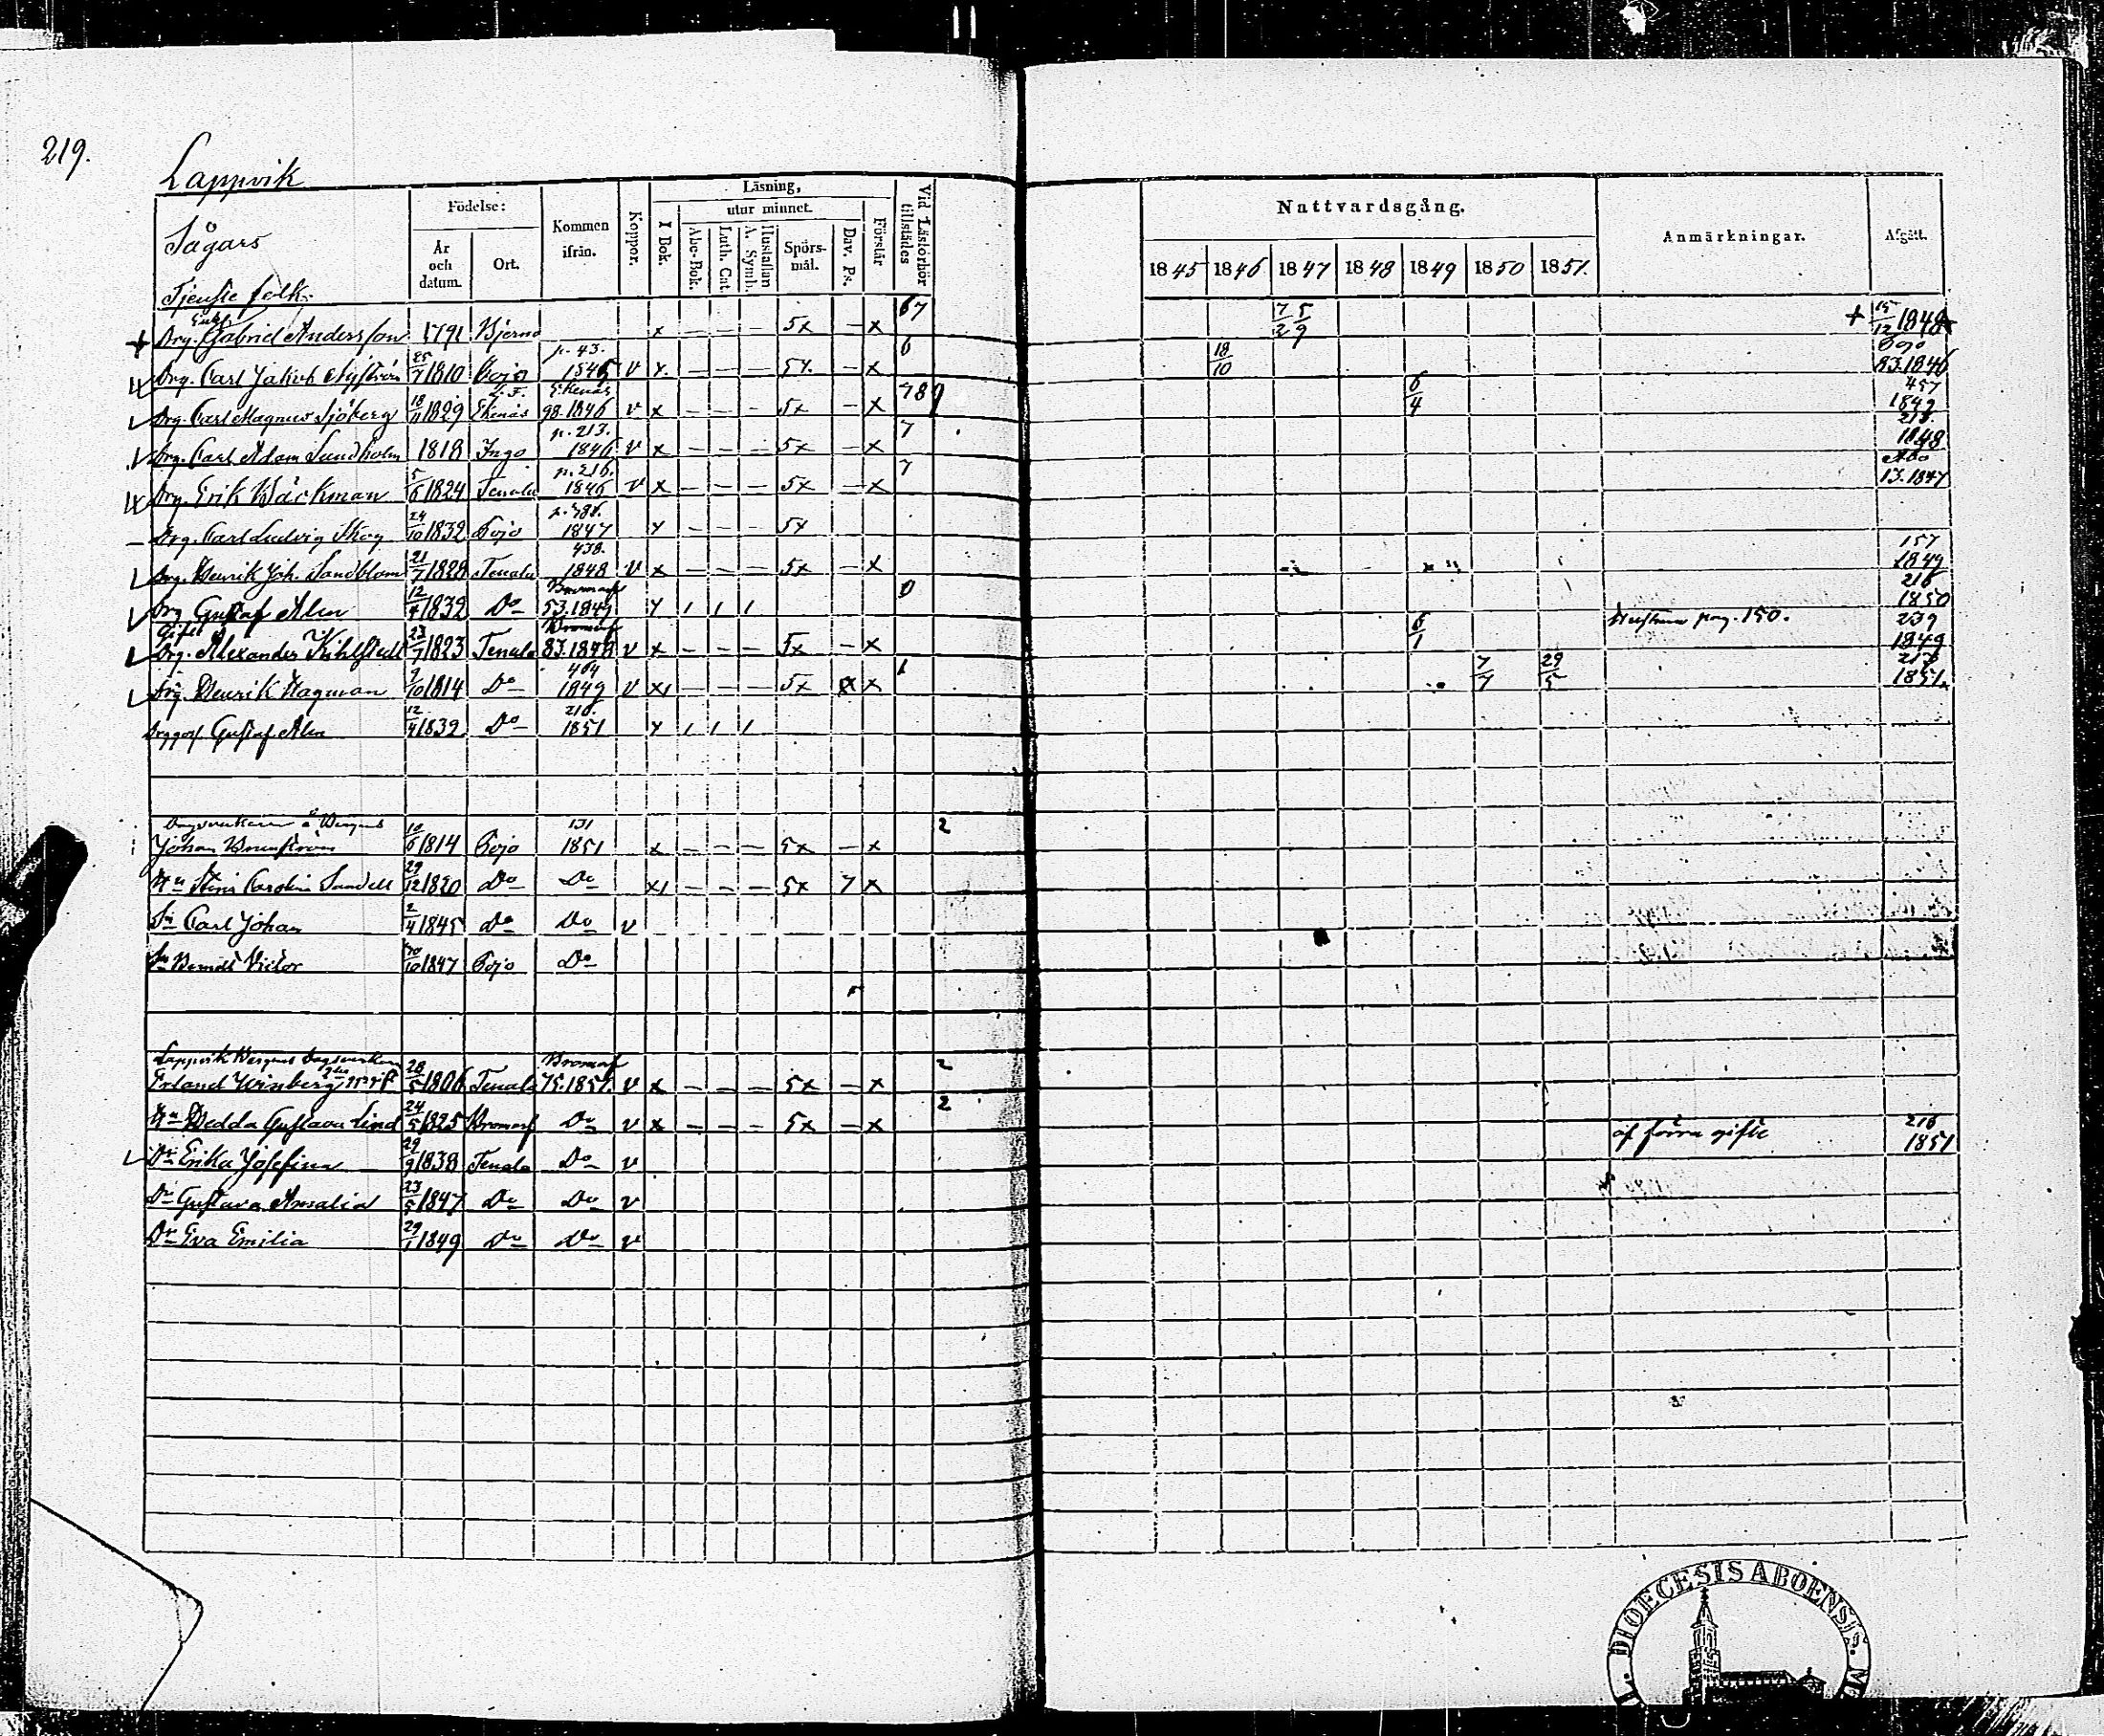 219.
Lappvik
Sågars
Tjenste folk:
Födelse:
År och datum.
Ort.
Kommen ifrån.
Koppor.
Läsning,
I Bok.
utur minnet.
Abc-Bok.
Luth. Cat.
Hustaflan A. Symb.
Spörsmål.
Dav. Ps.
Förstår
Vid Läsförhör tillstädes
Nattvardsgång.
1845 1846 1847 1848 1849 1850 1851.
Anmärkningar.
Afgått.
Drg. Gabriel Andersson 1791 Bjerno x – – – 5x – x 67 7/2 5/9 + 15/12 1848
Drg. Carl Jakob Nyström 25/7 1810 Pojo p. 43. 1846 v x – – – 5x – x 6 18/10 Pojo 83.1846
Drg. Carl Magnus Sjöberg 18/11 1829 Ekenäs Ekenäs 98.1846 v x – – – 5x – x 789 6/4 457 1849
Drg. Carl Adam Sundholm 1818 Ingo p. 213. 1846 v x – – – 5x – x 7 218. 1848
Drg. Erik Bäckman 5/6 1824 Tenala p. 216. 1846 v x – – – 5x – x 7 Åbo 13.1847
Drg. Carl Ludvig Skog 24/10 1832 Pojo 1847 x – – – 5x
Drg. Henrik Joh. Sandblom 21/7 1828 Tenala 438. 1848 v x – – – 5x – x 157 1849
Drg Gustaf Alen 12/4 1832 Do Bromarf 53.1849 x 0 218 1850
Gifte
Drg. Alexander Kihlstedt 23/7 1823 Tenala Bromarf 83.1848 v x – – – 5x – x 6/1 Hustrun pag. 150. 239 1849
Drg. Henrik Hagman 9/10 1814 Do 464 1849 v x – – – 5x x 1 7/7 29/5 217 1851.
Gustaf Alen 12/4 1832 Do 218. 1851 x
Dagsverkaren å Bergus
Johan Brunström 10/6 1814 Pojo 131 1851 x – – – 5x – x 2
Hu Stina Carolin Sandell 29/12 1820 Do Do x – – – 5x 7 x
Sn Carl Johan 2/4 1845 Do Do v
Sn Berndt Victor 10/10 1847 Pojo Do
Lappvik Bergus Dagsverkaren
Erland Winberg 28/5 1806 Tenala Bromarf 75.1851. v x – – – 5x – x 2
Hu Hedda Gustava Lind 24/5 1825 Bromarf Do v x – – – 5x – x 2
Dr Erika Josefina 29/9 1838 Tenala Do v af förra gifte 216 1851
Dr Gustava Amalia 23/5 1847 Do Do v
Dr Eva Emilia 29/1 1849 Do Do v
DIOECESIS ABOENSIS